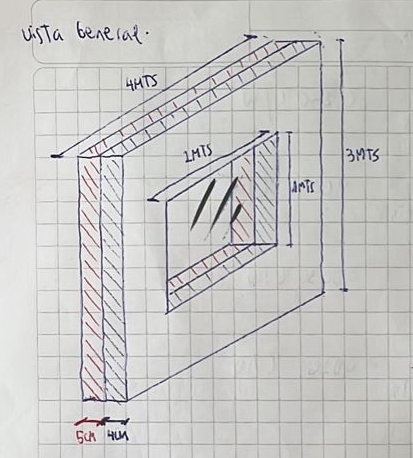 vista General.
4MTS
2MTS
1MTS
3MTS
5CM 4CM